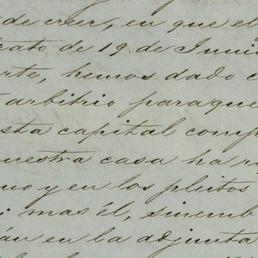 de creer, en que el
trato de 19 de Juni
rte, hemos dado c
arbitrio paraque
sta capital comp
uestra casa ha r
mo y en los pleitos
; mas él, sinemb
án en la adjunta